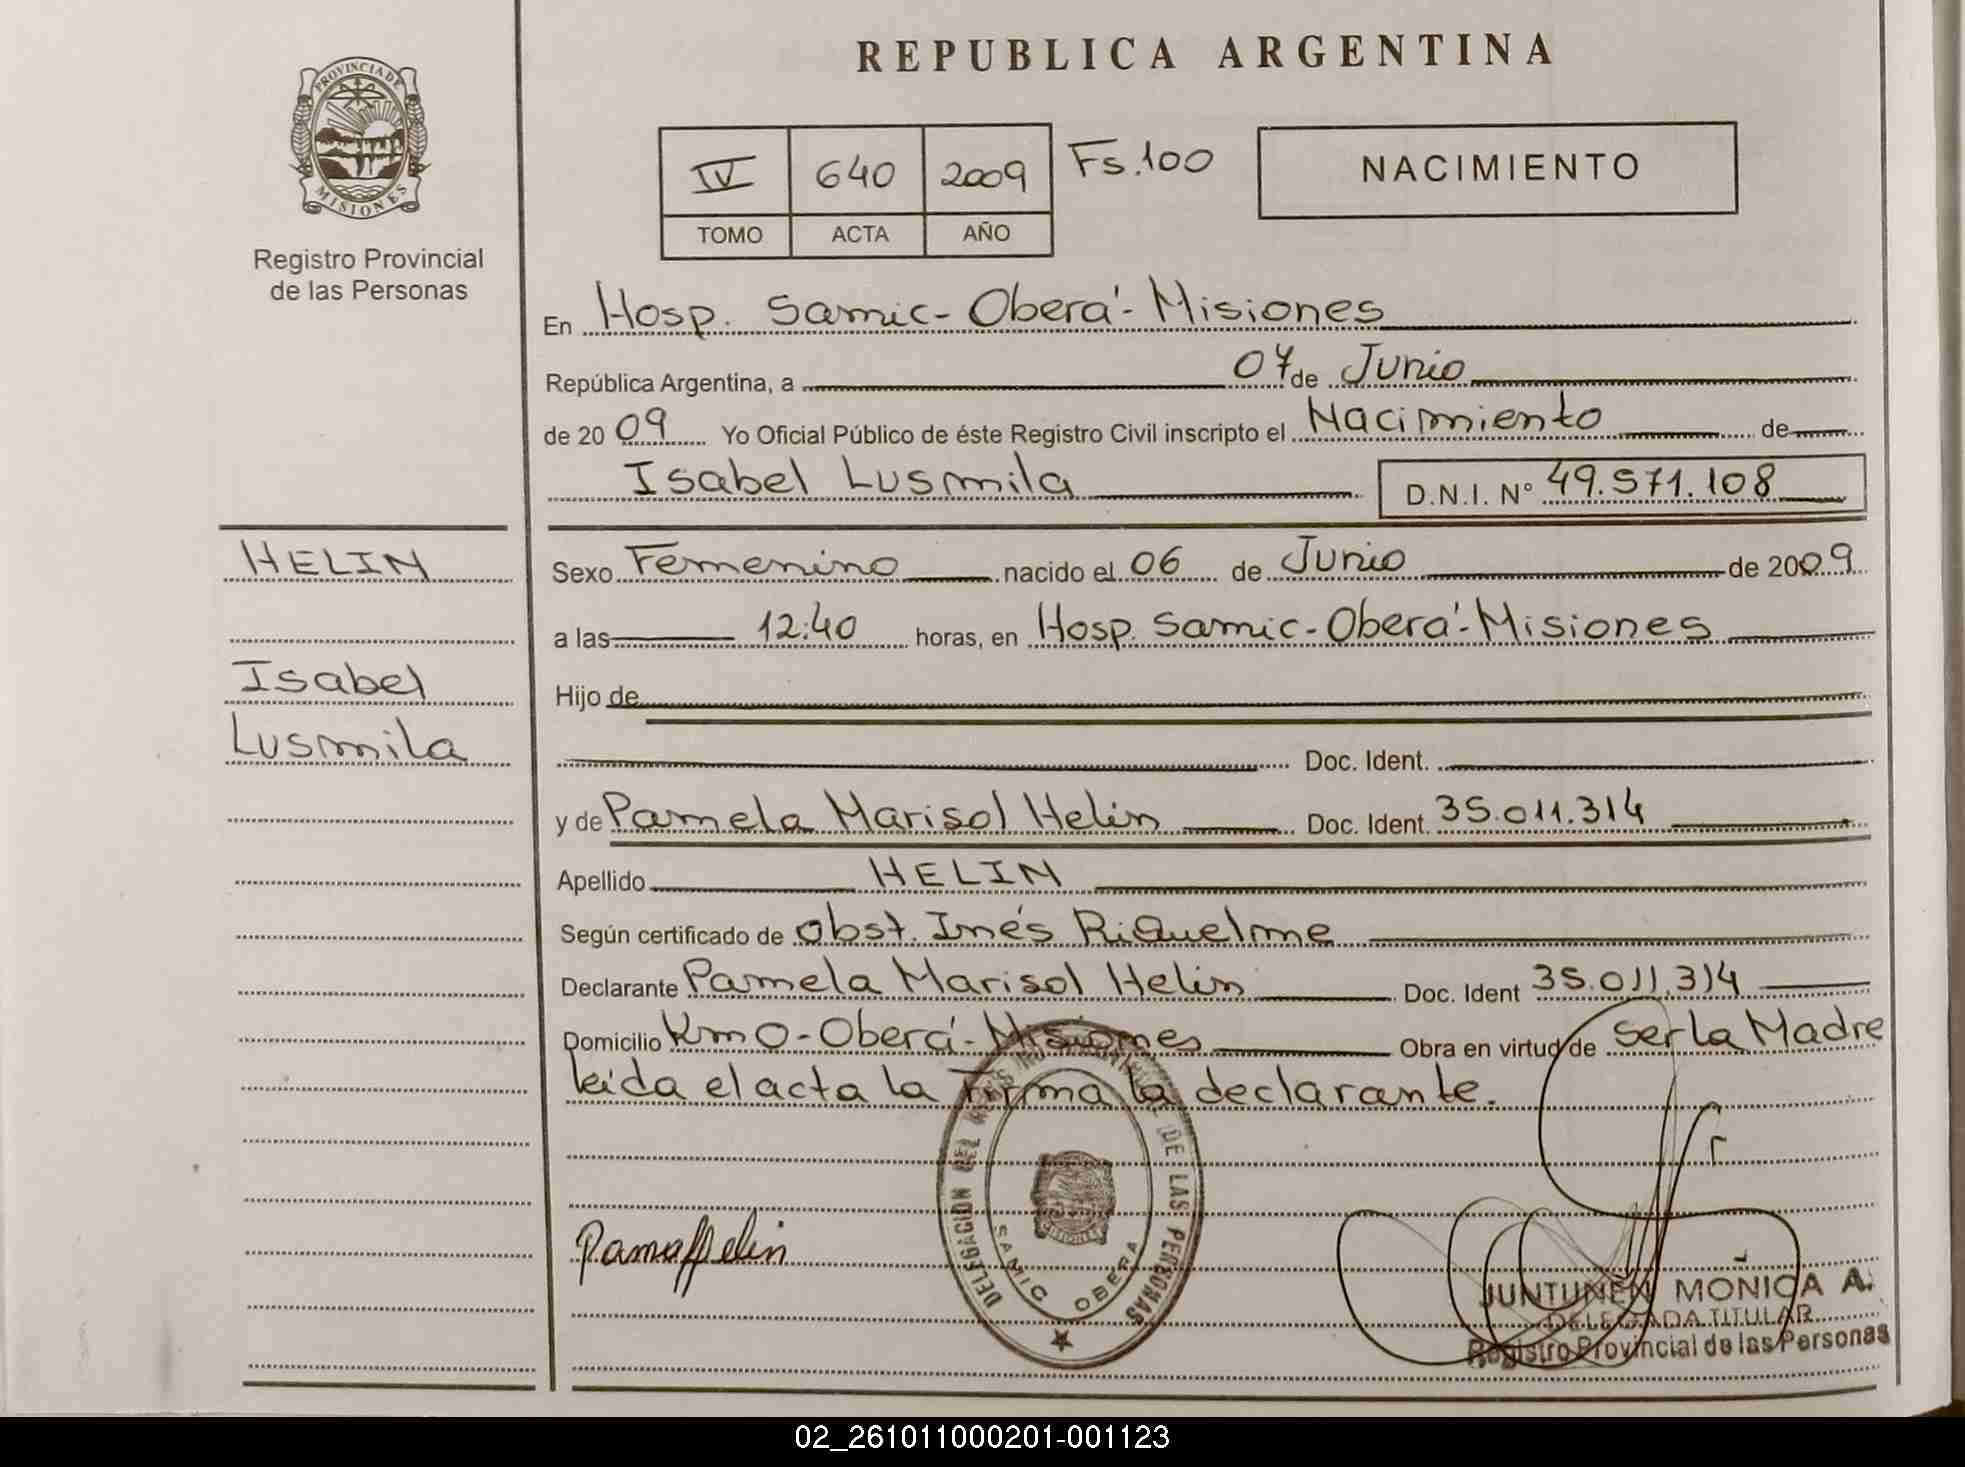 PROVINCIA DE
MISIONES
Registro Provincial
de las Personas
HELIN
Isabel
Lusmila
REPUBLICA ARGENTINA
IV 640 2009 Fs.100
TOMO ACTA AÑO
NACIMIENTO
En Hosp. Samic - Oberá - Misiones
República Argentina, a 07 de Junio
de 2009 Yo Oficial Público de éste Registro Civil inscripto el Nacimiento de
Isabel Lusmila D.N.I. N° 49.571.108
Sexo Femenino nacido el 06 de Junio de 2009
a las 12:40 horas, en Hosp. Samic - Oberá - Misiones
Hijo de
Doc. Ident.
y de Pamela Marisol Helin Doc. Ident. 35.011.314
Apellido HELIN
Según certificado de Obst. Inés Riquelme
Declarante Pamela Marisol Helin Doc. Ident 35.011.314
Domicilio Km 0 - Oberá - Misiones Obra en virtud de ser la Madre
leida el acta la firma la declarante.
DELEGACION DEL DE LAS PERSONAS
SAMIC OBERA
JUNTUNEN MONICA A.
DELEGADA TITULAR
Registro Provincial de las Personas
02_261011000201-001123